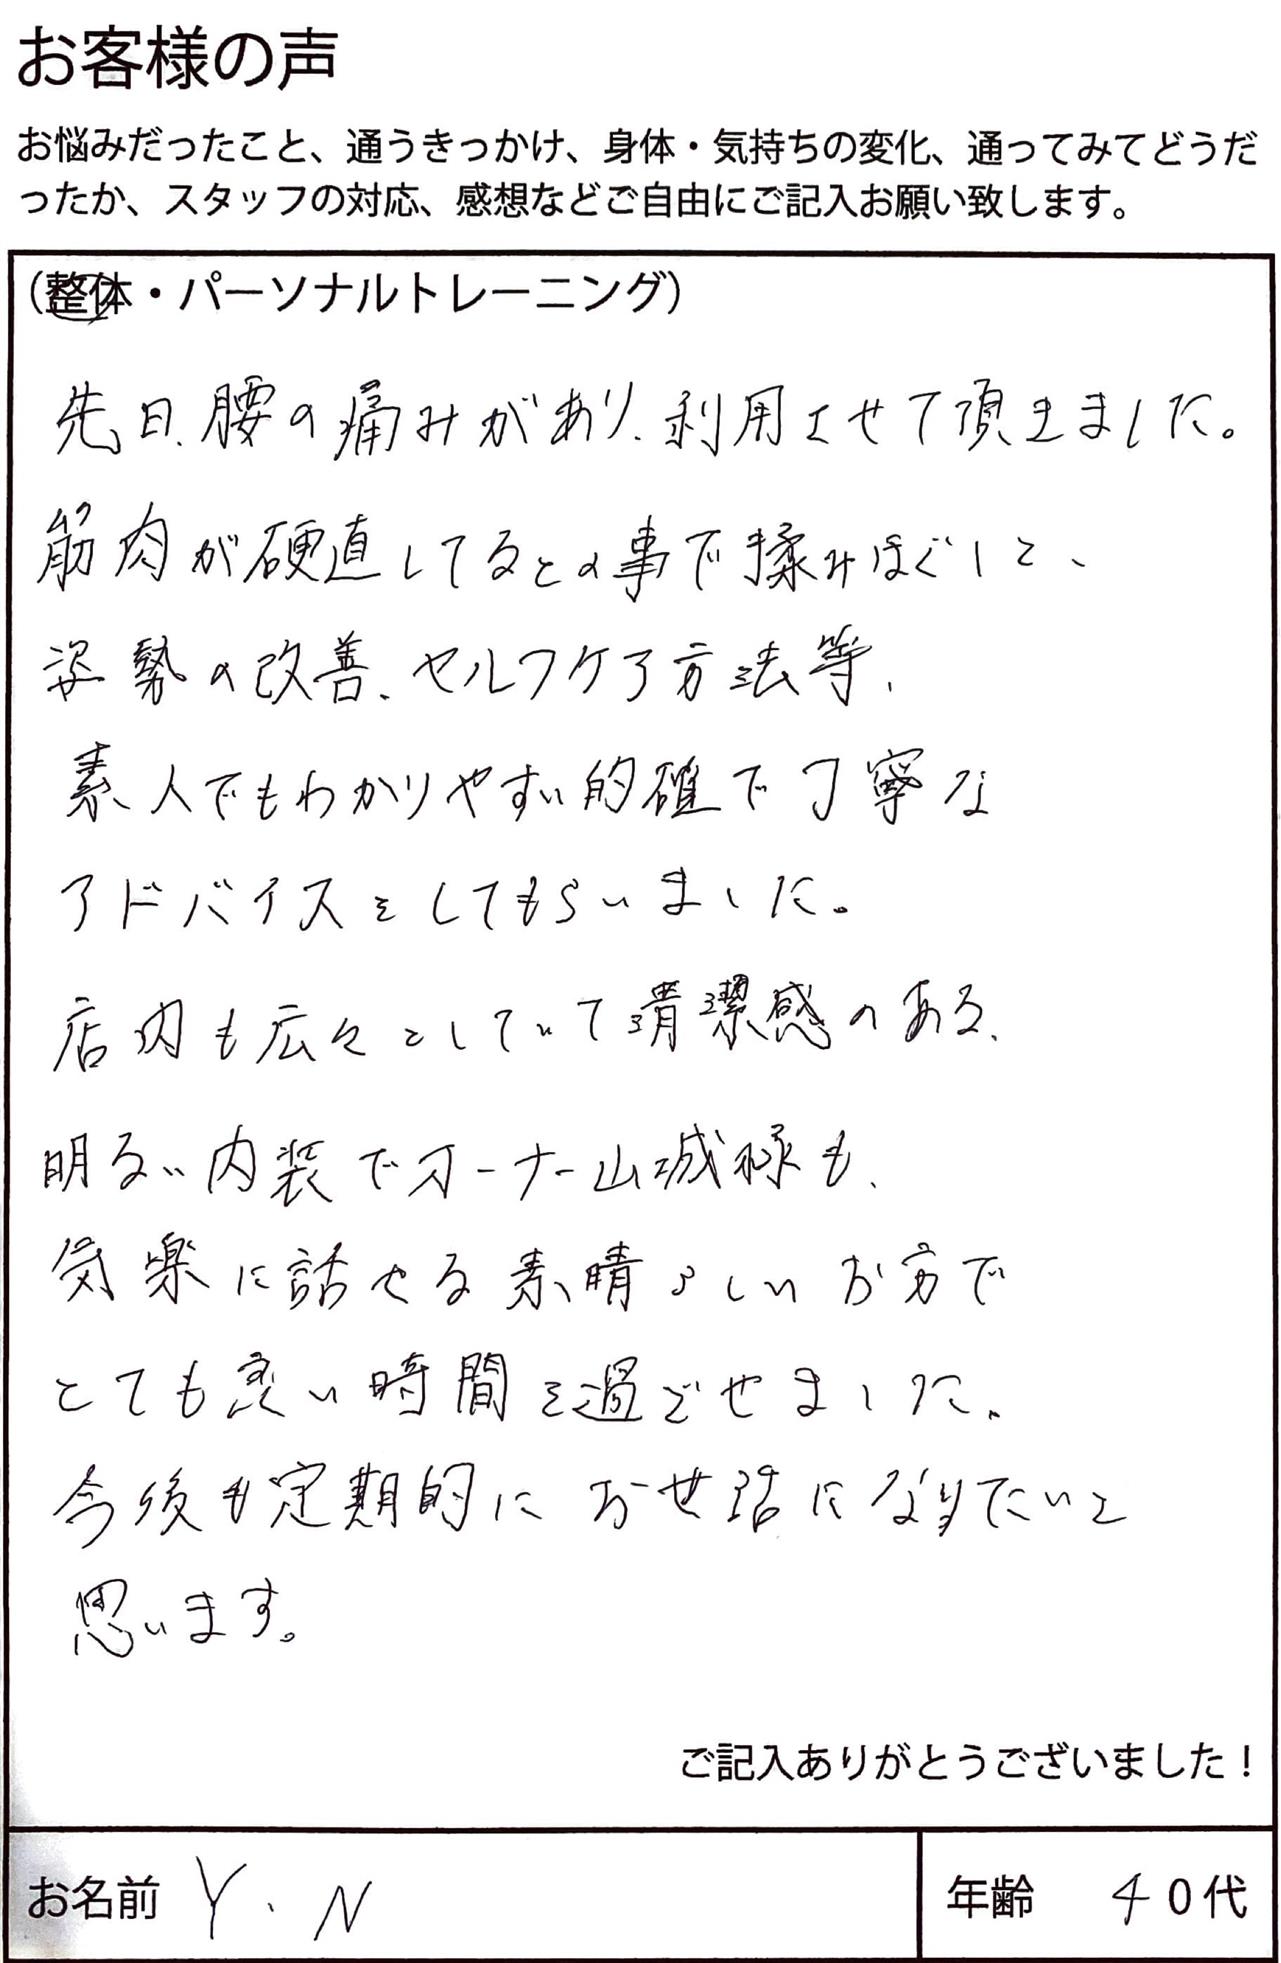 お客様の声
お悩みだったこと、通うきっかけ、身体・気持ちの変化、通ってみてどうだ
ったか、スタッフの対応、感想などご自由にご記入お願い致します。
（整体・パーソナルトレーニング）
先日、腰の痛みがあり、利用させて頂きました。
筋肉が硬直してるとの事で揉みほぐしと、
姿勢の改善、セルフケア方法等、
素人でもわかりやすい的確で丁寧な
アドバイスをしてもらいました。
店内も広々としていて清潔感のある、
明るい内装でオーナー山城様も、
気楽に話せる素晴らしいお方で
とても良い時間を過ごせました、
今後も定期的にお世話になりたいと
思います。
ご記入ありがとうございました！
お名前 Y.N
年齢 40代